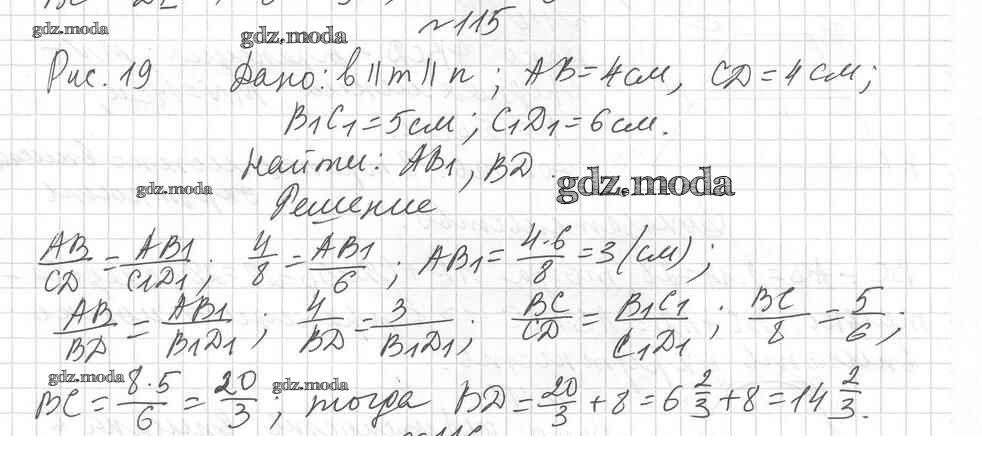 №115
gdz.moda
gdz.moda
Рис. 19 Дано: b || m || n ; AB = 4 см, CD = 4 см;
B₁C₁ = 5 см; C₁D₁ = 6 см.
Найти: AB₁, BD.
gdz.moda
gdz.moda
Решение
AB/CD = AB₁/C₁D₁; 4/8 = AB₁/6; AB₁ = 4·6/8 = 3 (см);
AB/BD = AB₁/B₁D₁; 4/BD = 3/B₁D₁; BC/CD = B₁C₁/C₁D₁; BC/8 = 5/6;
gdz.moda
gdz.moda
BC = 8·5/6 = 20/3; тогда BD = 20/3 + 8 = 6 2/3 + 8 = 14 2/3.